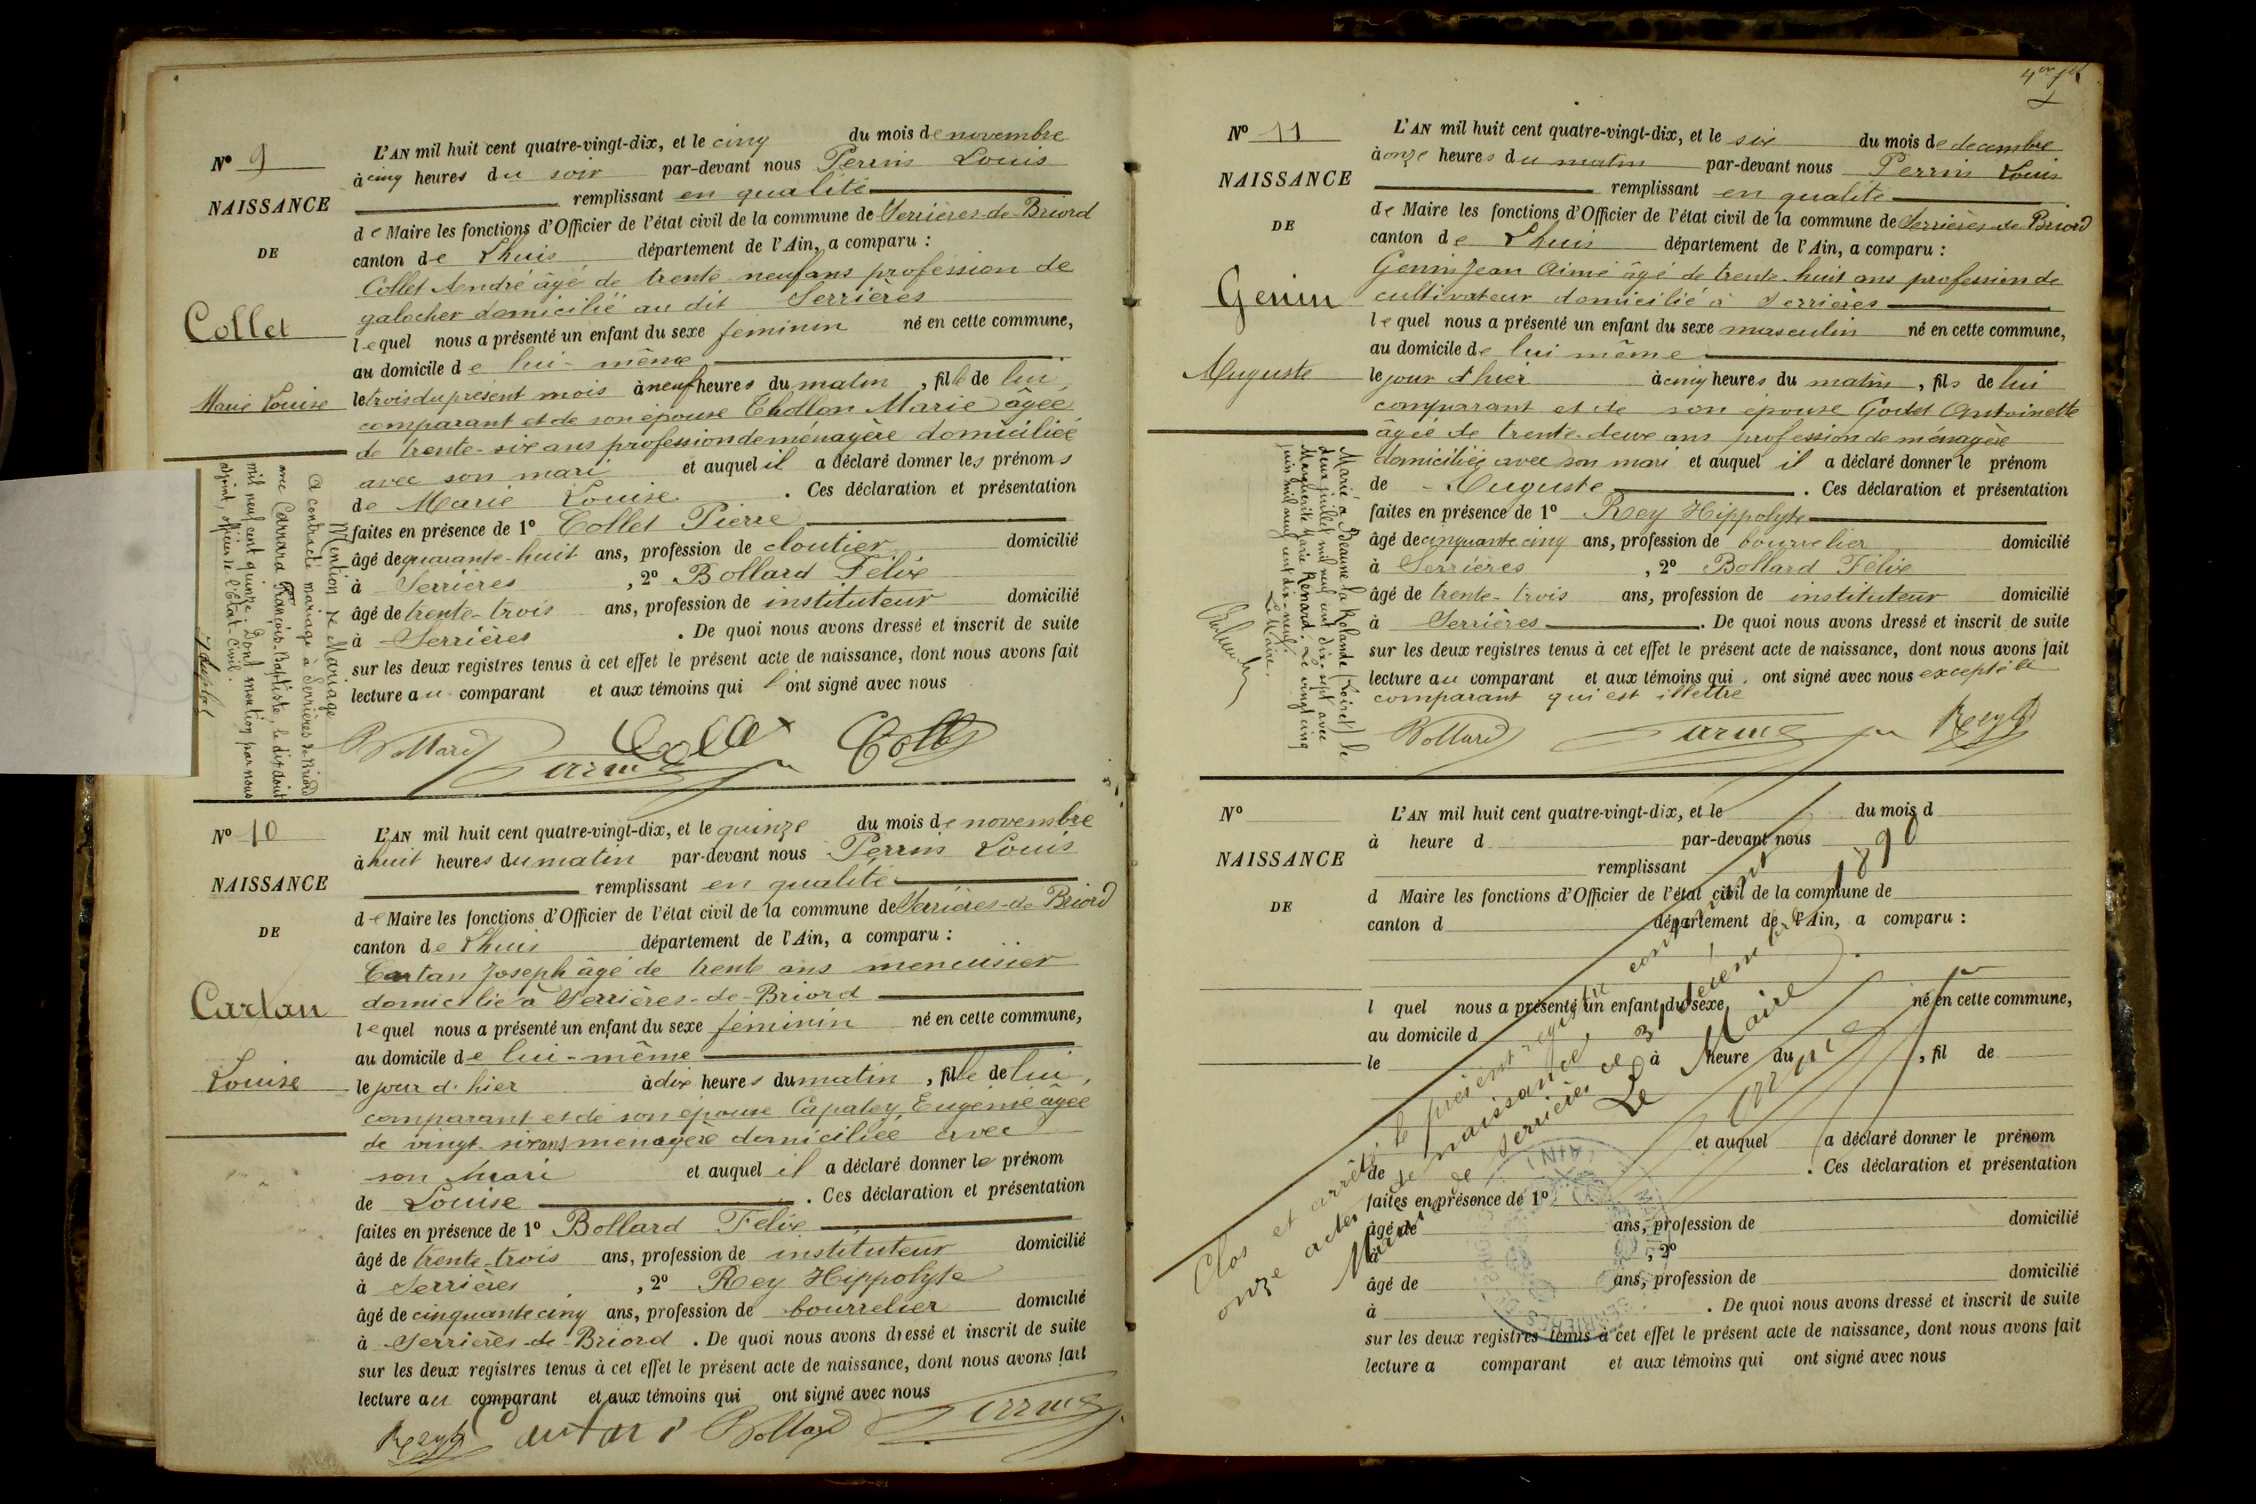 N° 9
NAISSANCE
DE
Collet
Marie Louise
L'AN mil huit cent quatre-vingt-dix, et le cinq du mois de novembre
à cinq heures du soir par-devant nous Perrin Louis
remplissant en qualité
de Maire les fonctions d'Officier de l'état civil de la commune de Serrières-de-Briord
canton de Lhuis département de l'Ain, a comparu :
Collet André âgé de trente-neuf ans profession de
galocher domicilié au dit Serrières
lequel nous a présenté un enfant du sexe féminin né en cette commune,
au domicile de lui-même
le trois du présent mois à neuf heures du matin, fille de lui,
comparant et de son épouse Chollon Marie âgée
de trente-six ans profession de ménagère domiciliée
avec son mari et auquel il a déclaré donner les prénoms
de Marie Louise. Ces déclaration et présentation
faites en présence de 1° Collet Pierre
âgé de quarante-huit ans, profession de cloutier domicilié
à Serrières, 2° Bollard Félix
âgé de trente-trois ans, profession de instituteur domicilié
à Serrières. De quoi nous avons dressé et inscrit de suite
sur les deux registres tenus à cet effet le présent acte de naissance, dont nous avons fait
lecture au comparant et aux témoins qui l'ont signé avec nous
Bollard Perrin Collet Collet
Mention de Mariage
A contracté mariage à Serrières-de-Briord
avec Carrara François-Baptiste, le dix août
mil neuf cent quinze. Dont mention par nous
adjoint, officier de l'Etat-Civil.
N° 10
NAISSANCE
DE
Cartan
Louise
L'AN mil huit cent quatre-vingt-dix, et le quinze du mois de novembre
à huit heures du matin par-devant nous Perrin Louis
remplissant en qualité
de Maire les fonctions d'Officier de l'état civil de la commune de Serrières-de-Briord
canton de Lhuis département de l'Ain, a comparu :
Cartan Joseph âgé de trente ans menuisier
domicilié à Serrières-de-Briord
lequel nous a présenté un enfant du sexe féminin né en cette commune,
au domicile de lui-même
le jour d'hier à dix heures du matin, fille de lui,
comparant et de son épouse Capatey Eugénie âgée
de vingt-six ans ménagère domiciliée avec
son mari et auquel il a déclaré donner le prénom
de Louise. Ces déclaration et présentation
faites en présence de 1° Bollard Félix
âgé de trente-trois ans, profession de instituteur domicilié
à Serrières, 2° Rey Hippolyte
âgé de cinquante cinq ans, profession de bourrelier domicilié
à Serrières-de-Briord. De quoi nous avons dressé et inscrit de suite
sur les deux registres tenus à cet effet le présent acte de naissance, dont nous avons fait
lecture au comparant et aux témoins qui ont signé avec nous
Rey Cartan Bollard Perrin
N° 11
NAISSANCE
DE
Genin
Auguste
L'AN mil huit cent quatre-vingt-dix, et le six du mois de decembre
à onze heures du matin par-devant nous Perrin Louis
remplissant en qualité
de Maire les fonctions d'Officier de l'état civil de la commune de Serrières-de-Briord
canton de Lhuis département de l'Ain, a comparu :
Genin Jean Aimé âgé de trente-huit ans profession de
cultivateur domicilié à Serrières
lequel nous a présenté un enfant du sexe masculin né en cette commune,
au domicile de lui même
le jour d'hier à cinq heures du matin, fils de lui
comparant et de son épouse Godet Antoinette
âgée de trente-deux ans profession de ménagère
domiciliée avec son mari et auquel il a déclaré donner le prénom
de Auguste. Ces déclaration et présentation
faites en présence de 1° Rey Hippolyte
âgé de cinquante cinq ans, profession de bourrelier domicilié
à Serrières, 2° Bollard Félix
âgé de trente-trois ans, profession de instituteur domicilié
à Serrières. De quoi nous avons dressé et inscrit de suite
sur les deux registres tenus à cet effet le présent acte de naissance, dont nous avons fait
lecture au comparant et aux témoins qui ont signé avec nous excepté le
comparant qui est illettré
Bollard Perrin Rey
Marié à Beaune la Rolande (Loiret) le
deux juillet mil neuf cent dix-sept avec
Marguerite Marie Renard. Le vingt cinq
juin mil neuf cent dix-neuf.
Le Maire.
N°
NAISSANCE
DE
L'AN mil huit cent quatre-vingt-dix, et le du mois d
à heure d par-devant nous
remplissant
d Maire les fonctions d'Officier de l'état civil de la commune de
canton d département de l'Ain, a comparu :
l quel nous a présenté un enfant du sexe né en cette commune,
au domicile d
le à heure du, fil de
et auquel a déclaré donner le prénom
de. Ces déclaration et présentation
faites en présence de 1°
âgé de ans, profession de domicilié
à, 2°
âgé de ans, profession de domicilié
à. De quoi nous avons dressé et inscrit de suite
sur les deux registres tenus à cet effet le présent acte de naissance, dont nous avons fait
lecture a comparant et aux témoins qui ont signé avec nous
Clos et arrêté le présent registre contenant
onze actes de naissance,
Mairie de Serrières ce 31 décembre 1890
Le Maire
Perrin